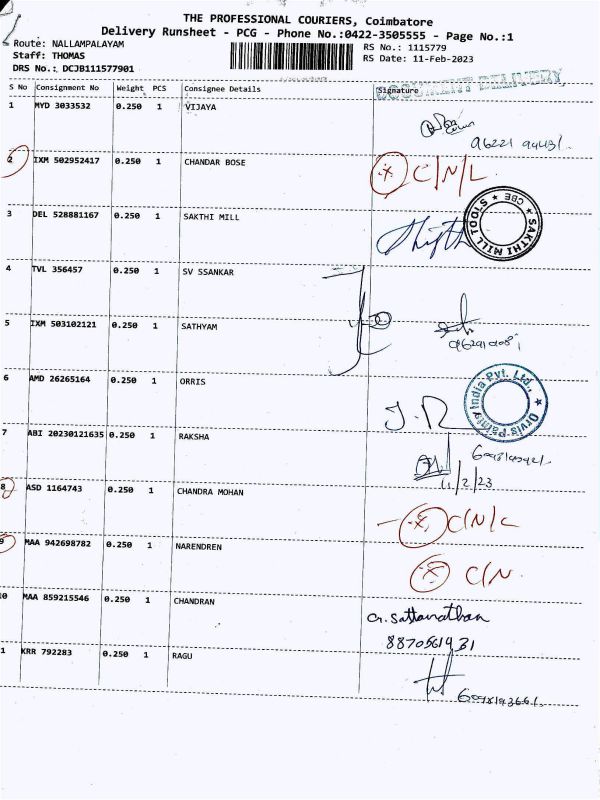 THE PROFESSIONAL COURIERS, Coimbatore
Delivery Runsheet - PCG - Phone No.:0422-3505555 - Page No.:1
Route: NALLAMPALAYAM
RS No.: 1115779
Staff: THOMAS
RS Date: 11-Feb-2023
DRS No.: DCJB111577901
DOCUMENT DELIVERY
S No Consignment No Weight PCS Consignee Details Signature
1 MYD 3033532 0.250 1 VIJAYA
2 IXM 502952417 0.250 1 CHANDAR BOSE C/N/L
3 DEL 528881167 0.250 1 SAKTHI MILL
SAKTHI MILL STOOTS ★ CBE ★
4 TVL 356457 0.250 1 SV SSANKAR
5 IXM 503102121 0.250 1 SATHYAM
6 AMD 26265164 0.250 1 ORRIS
India Pvt. Ltd., ★ Orvis
J.R
7 ABI 20230121635 0.250 1 RAKSHA
11/2/23
8 ASD 1164743 0.250 1 CHANDRA MOHAN C/N/L
9 MAA 942698782 0.250 1 NARENDREN C/N.
10 MAA 859215546 0.250 1 CHANDRAN
G. Sattanathan
8870561931
1 KRR 792283 0.250 1 RAGU